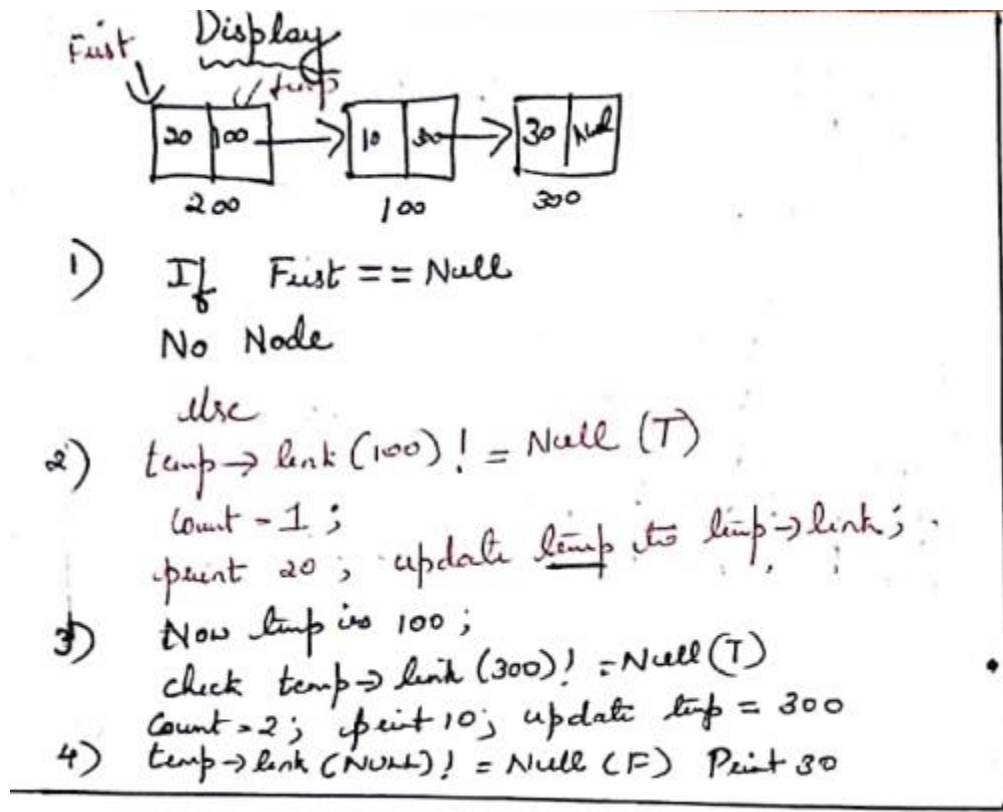 Display
First
temp
20 100 10 300 30 Null
200 100 300
1) If First == Null
No Node
else
2) temp→ link (100) != Null (T)
count = 1 ;
print 20 ; update temp to temp→link ;
3) Now temp is 100 ;
check temp→ link (300) != Null (T)
Count = 2 ; print 10 ; update temp = 300
4) temp→ link (NULL) != Null (F) Print 30